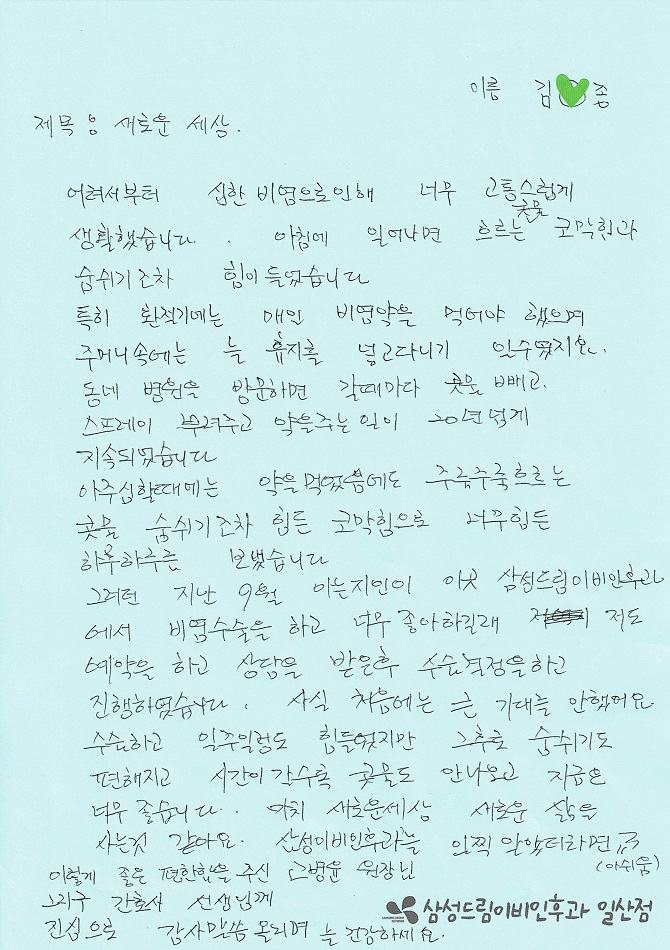 이름 김 종
제목 : 새로운 세상.
어려서부터 심한 비염으로인해 너무 고통스럽게
생활했습니다. 아침에 일어나면 흐르는 콧물 코막힘과
숨쉬기조차 힘이들었습니다
특히 환절기에는 매일 비염약을 먹어야 했으며
주머니속에는 늘 휴지를 넣고다니기 일수였지요.
동네 병원을 방문하면 갈때마다 콧물 빼고.
스프레이 뿌려주고 약을주는일이 20년넘게
지속되었습니다
아주심할때에는 약을먹었음에도 주륵주륵흐르는
콧물 숨쉬기조차 힘든 코막힘으로 너무힘든
하루하루를 보냈습니다
그러던 지난 9월 아는지인이 이곳 삼성드림이비인후과
에서 비염수술을 하고 너무 좋아하길래 저도
예약을 하고 상담을 받은후 수술결정을하고
진행하였습니다. 사실 처음에는 큰 기대를 안했어요
수술하고 일주일정도 힘들었지만 그후로 숨쉬기도
편해지고 시간이갈수록 콧물도 안나오고 지금은
너무 좋습니다. 마치 새로운세상 새로운 삶을
사는것 같아요. 삼성이비인후과를 일찍 알았더라면 ㅠㅠ
(아쉬움)
이렇게 좋은 편한함을 주신 원장님
그리구 간호사 선생님께
진심으로 감사말씀 올리며 늘 건강하세요.
삼성드림이비인후과 일산점